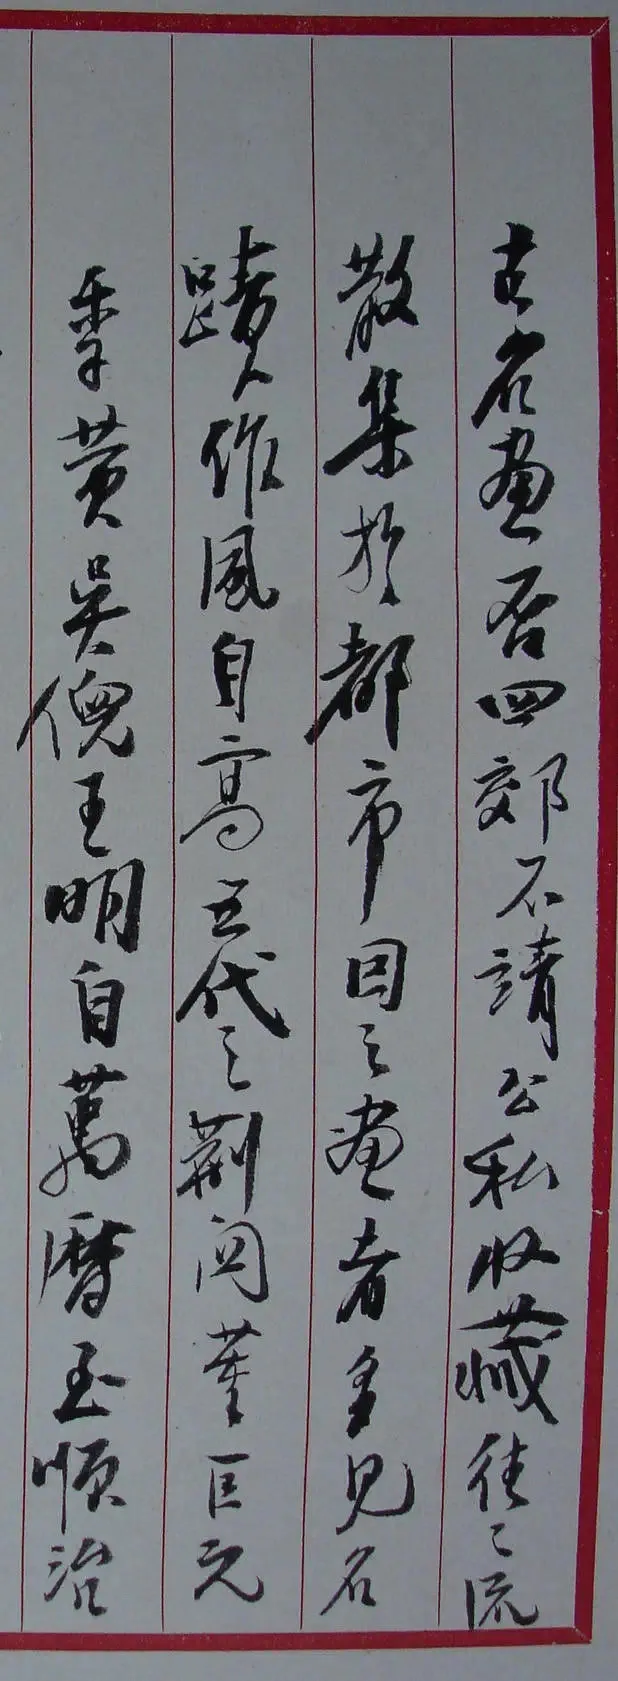 古名畫否四郊不請公私收藏往々流
散集於都市因之畫者多見名
蹟作風自高五代之荊関董巨元
季黃吳倪王明自萬曆至順治